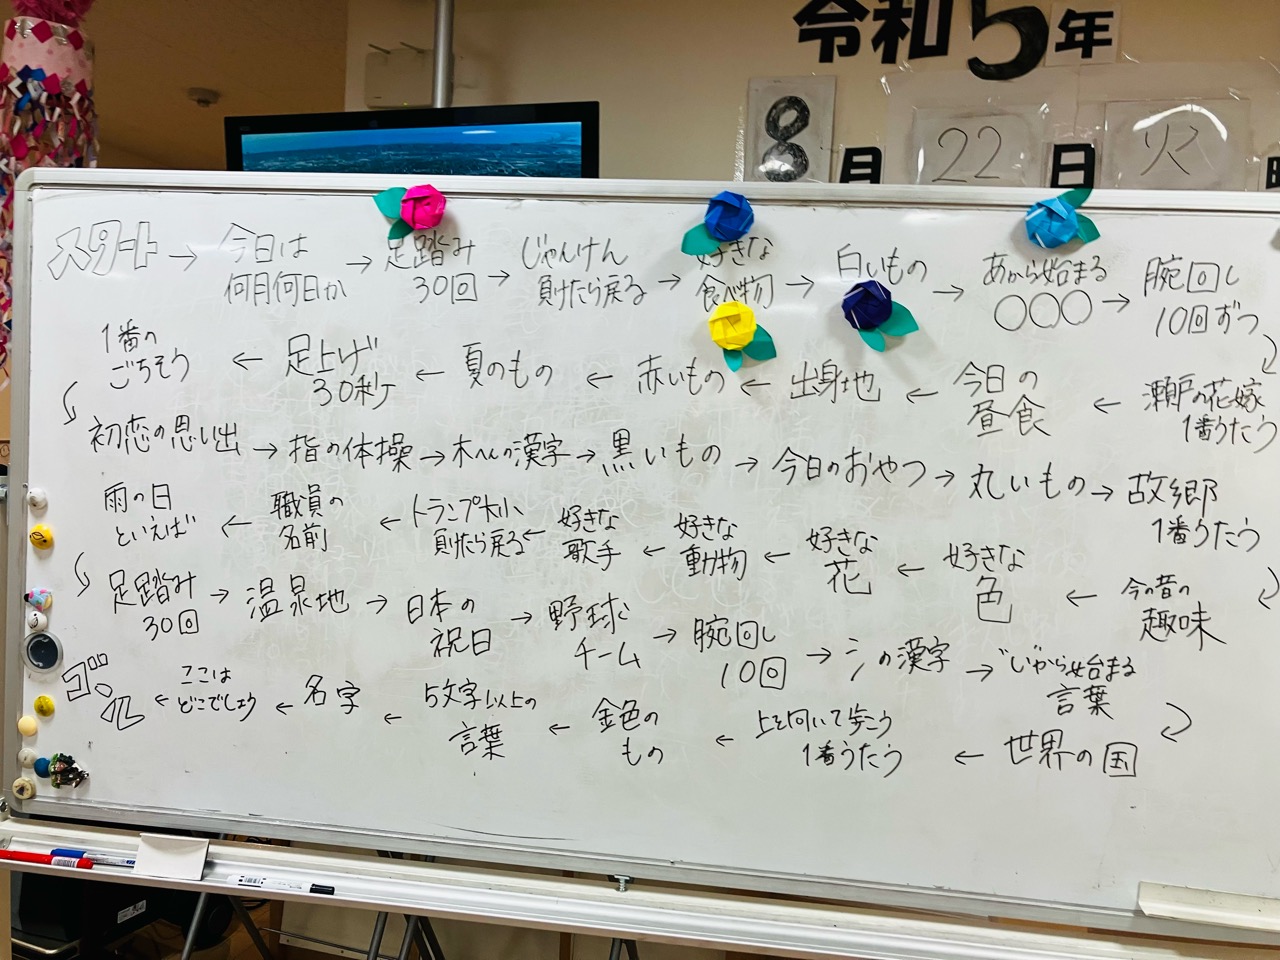 令和5年
8月22日火
スタート → 今日は何月何日か → 足踏み30回 → じゃんけん負けたら戻る → 好きな食べ物 → 白いもの → あから始まる○○○ → 腕回し10回ずつ
1番のごちそう ← 足上げ30秒 ← 夏のもの ← 赤いもの ← 出身地 ← 今日の昼食 ← 瀬戸の花嫁1番うたう
初恋の思い出 → 指の体操 → 木へんの漢字 → 黒いもの → 今日のおやつ → 丸いもの → 故郷1番うたう
雨の日といえば ← 職員の名前 ← トランプ大小負けたら戻る ← 好きな歌手 ← 好きな動物 ← 好きな花 ← 好きな色 ← 今の昔の趣味
足踏み30回 → 温泉地 → 日本の祝日 → 野球チーム → 腕回し10回 → シの漢字 → "じ"から始まる言葉
ゴール ← ここはどこでしょう ← 名字 ← 5文字以上の言葉 ← 金色のもの ← 上を向いて歩こう1番うたう ← 世界の国